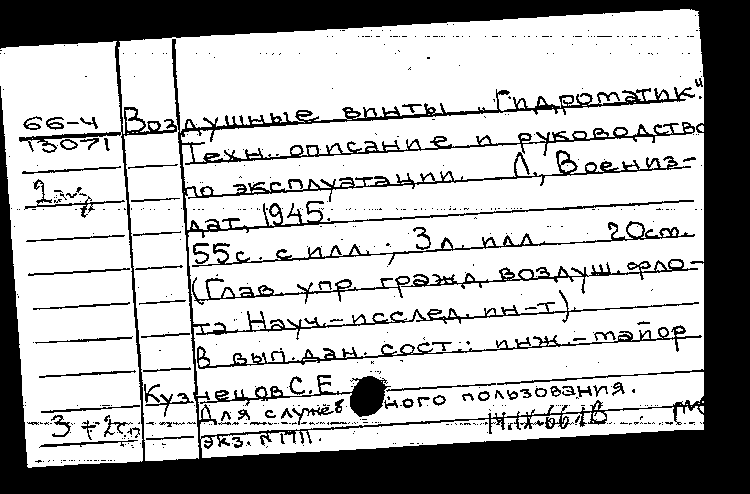 66-4 Воздушные винты „Гидроматик".
Т3071 Техн. описание и руководство
2 экз по эксплуатации. Л., Воениз-
дат, 1945.
55с. с илл.; 3л. илл. 20см.
(Глав. упр. гражд. воздуш. фло-
та. Науч.-исслед. ин-т).
В вып. дан. сост.: инж.-майор
Кузнецов С.Е.
Для служебного пользования.
3 + 2сп 14.IX.66
экз. №1711.